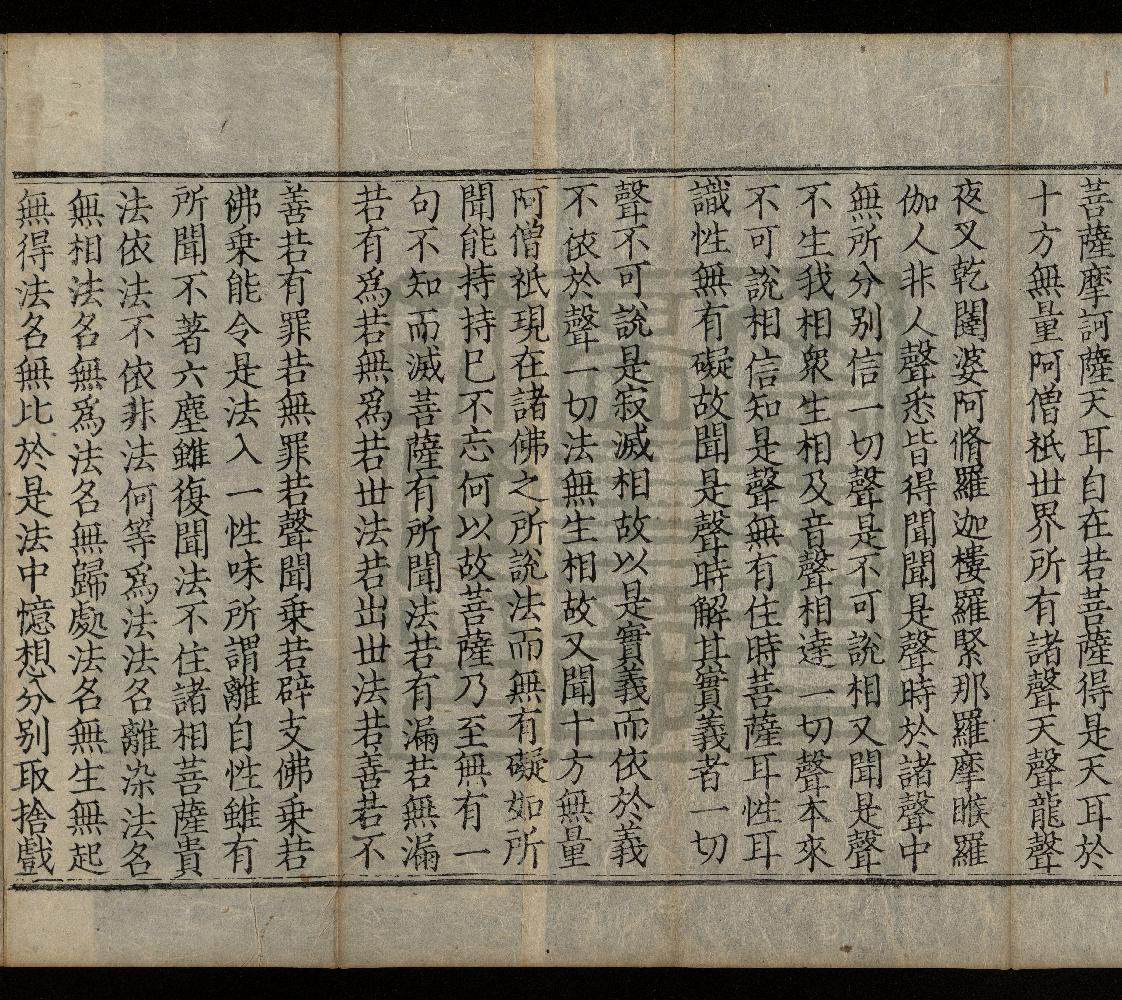 菩薩摩訶薩天耳自在若菩薩得是天耳於
十方無量阿僧祇世界所有諸聲天聲龍聲
夜叉乾闥婆阿脩羅迦樓羅緊那羅摩睺羅
伽人非人聲悉皆得聞聞是聲時於諸聲中
無所分別信一切聲是不可說相又聞是聲
不生我相衆生相及音聲相達一切聲本來
不可說相信知是聲無有住時菩薩耳性耳
識性無有礙故聞是聲時解其實義者一切
聲不可說是寂滅相故以是實義而依於義
不依於聲一切法無生相故又聞十方無量
阿僧祇現在諸佛之所說法而無有礙如所
聞能持持已不忘何以故菩薩乃至無有一
句不知而滅菩薩有所聞法若有漏若無漏
若有爲若無爲若世法若出世法若善若不
善若有罪若無罪若聲聞乘若辟支佛乘若
佛乘能令是法入一性味所謂離自性雖有
所聞不著六塵雖復聞法不住諸相菩薩貴
法依法不依非法何等爲法法名離染法名
無相法名無爲法名無歸處法名無生無起
無得法名無比於是法中憶想分別取捨戲